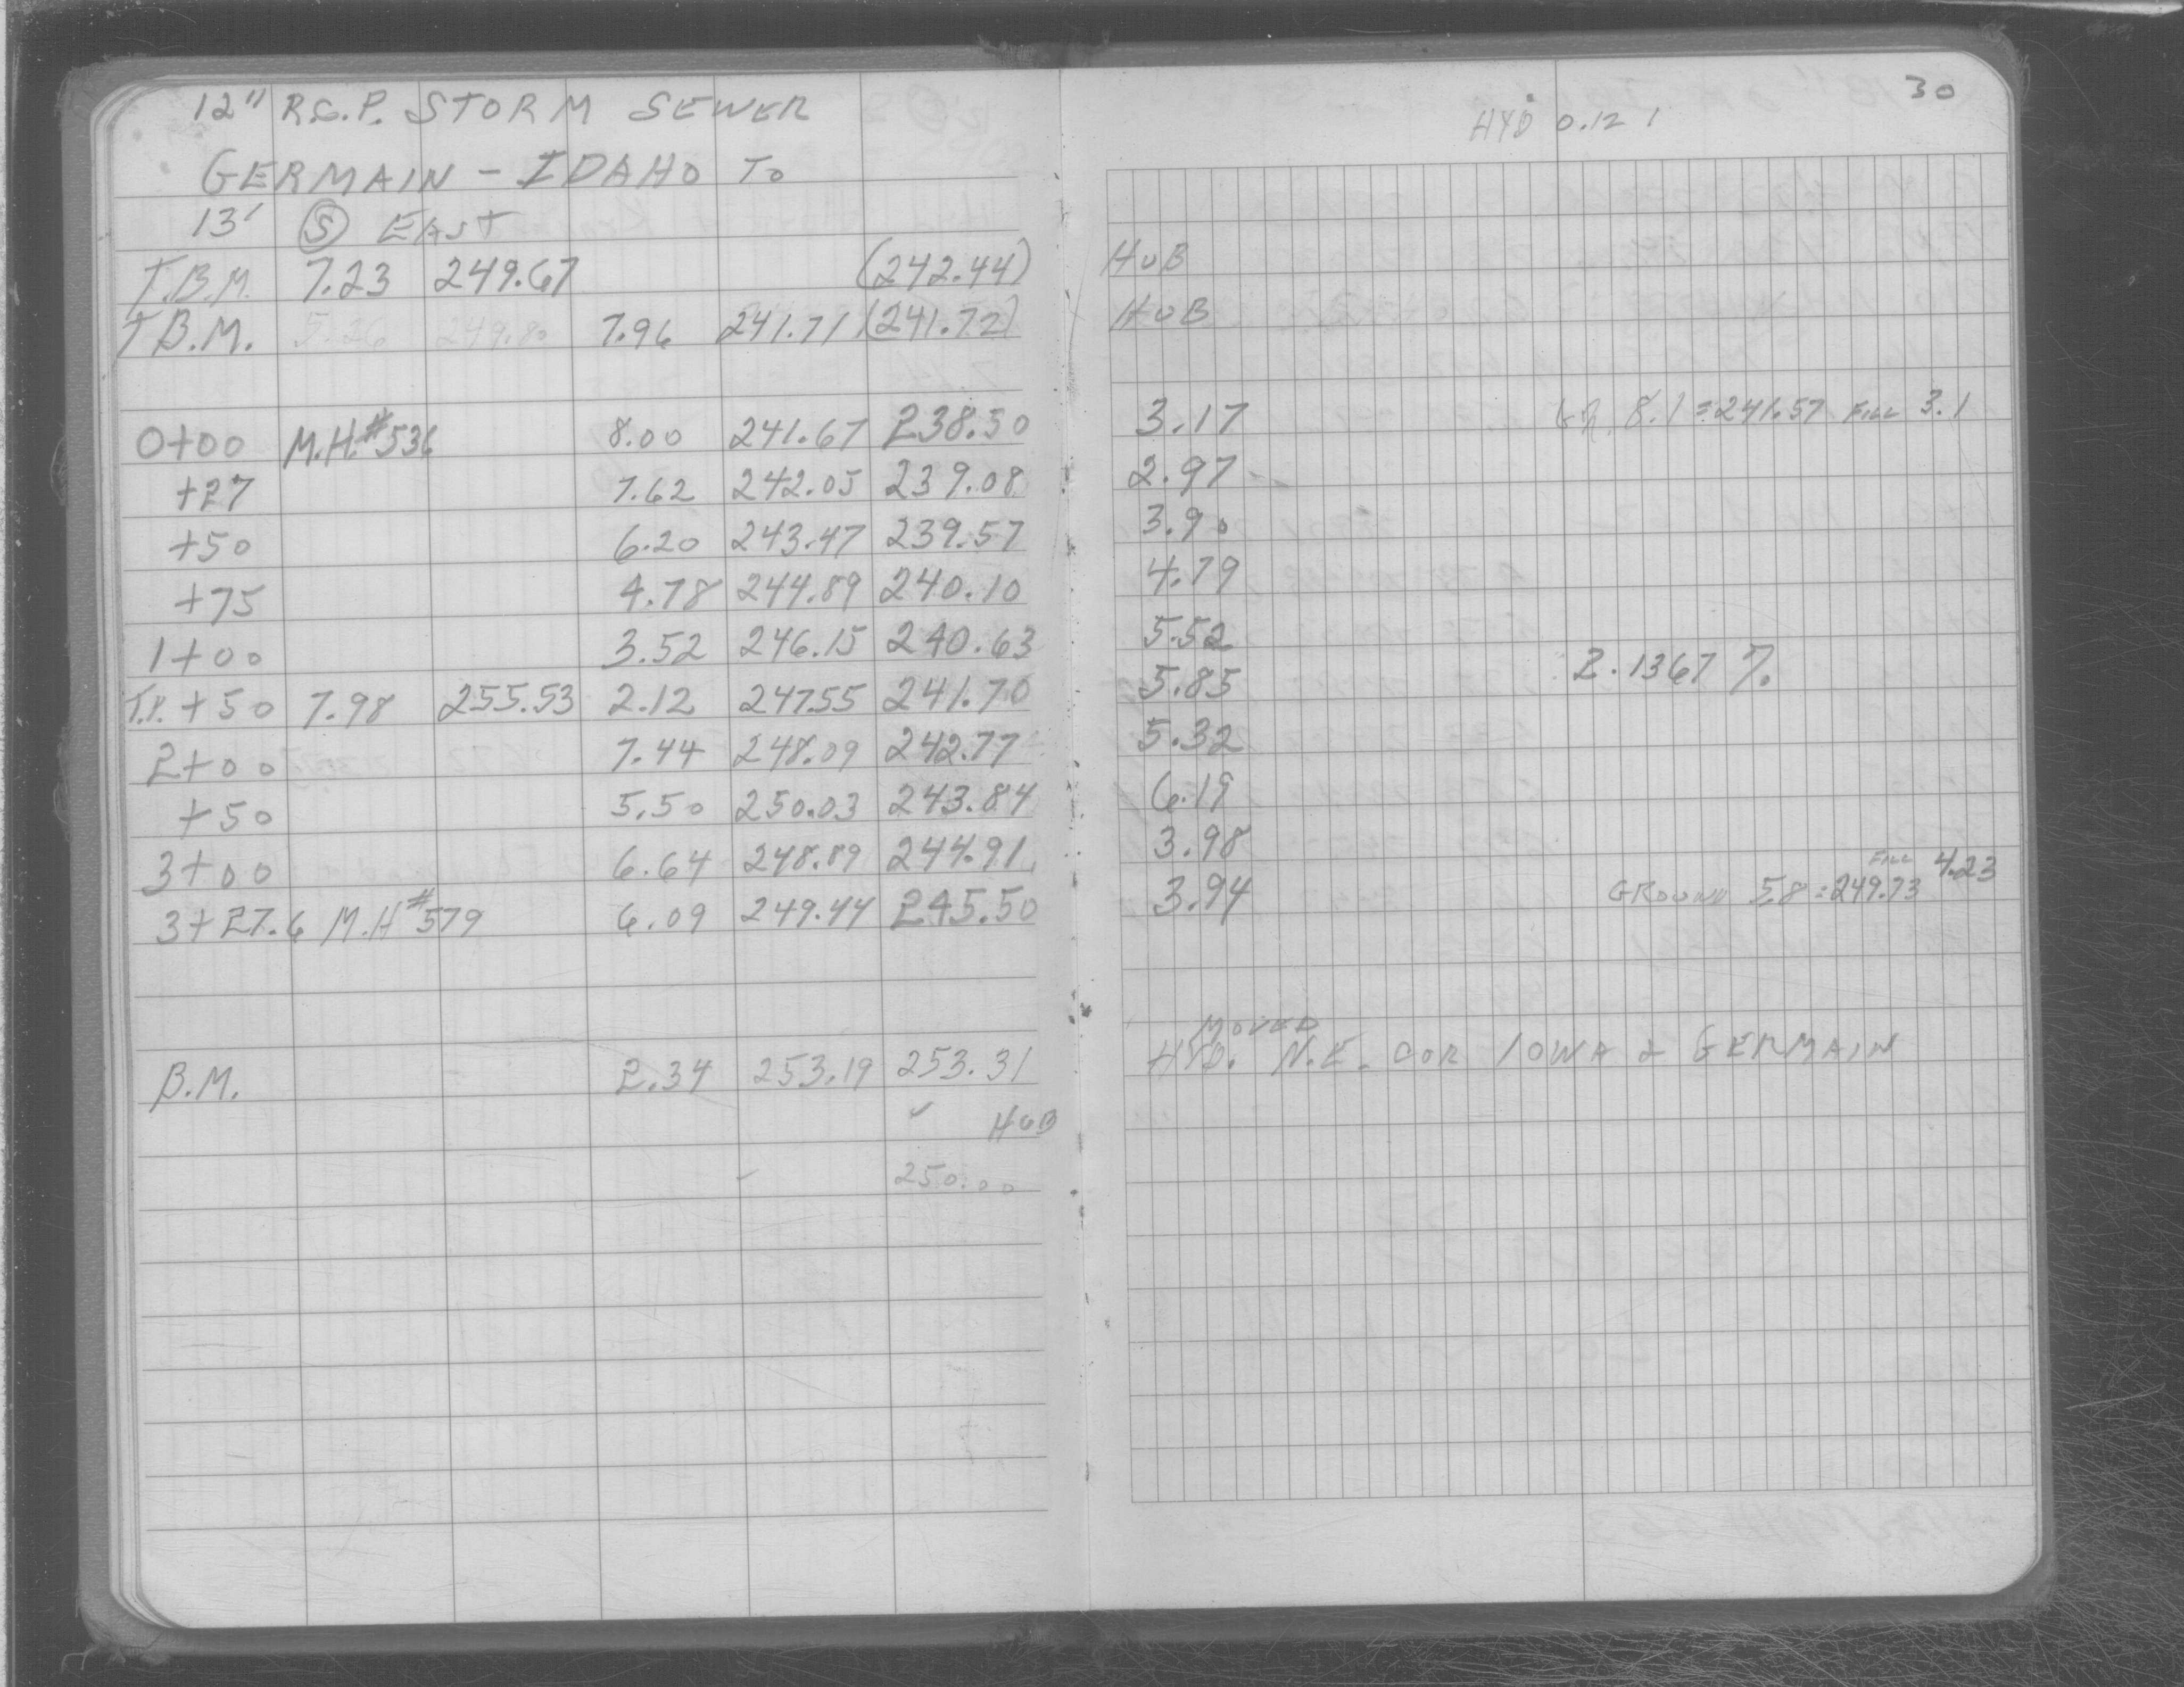 12" R.C.P. STORM SEWER
GERMAIN - IDAHO TO
13' (S) EAST
T.B.M. 7.23 249.67 (242.44)
T.B.M. 5.26 249.80 7.96 241.71 (241.72)
0+00 M.H.#536 8.00 241.67 238.50
+27 7.62 242.05 239.08
+50 6.20 243.47 239.57
+75 4.78 244.89 240.10
1+00 3.52 246.15 240.63
T.P. +50 7.98 255.53 2.12 247.55 241.70
2+00 7.44 248.09 242.77
+50 5.50 250.03 243.84
3+00 6.64 248.89 244.91
3+27.6 M.H #579 6.09 249.44 245.50
B.M. 2.34 253.19 253.31
✓ HUB
250.00
30
HYD 0.12
HUB
HUB
3.17 GR. 8.1 = 241.57 FILL 3.1
2.97
3.90
4.79
5.52
5.85 2.1367 %
5.32
6.19
3.98
3.94 GROUND 5.8 = 249.73 FILL 4.23
MOVED
HYD. N.E. COR IOWA & GERMAIN